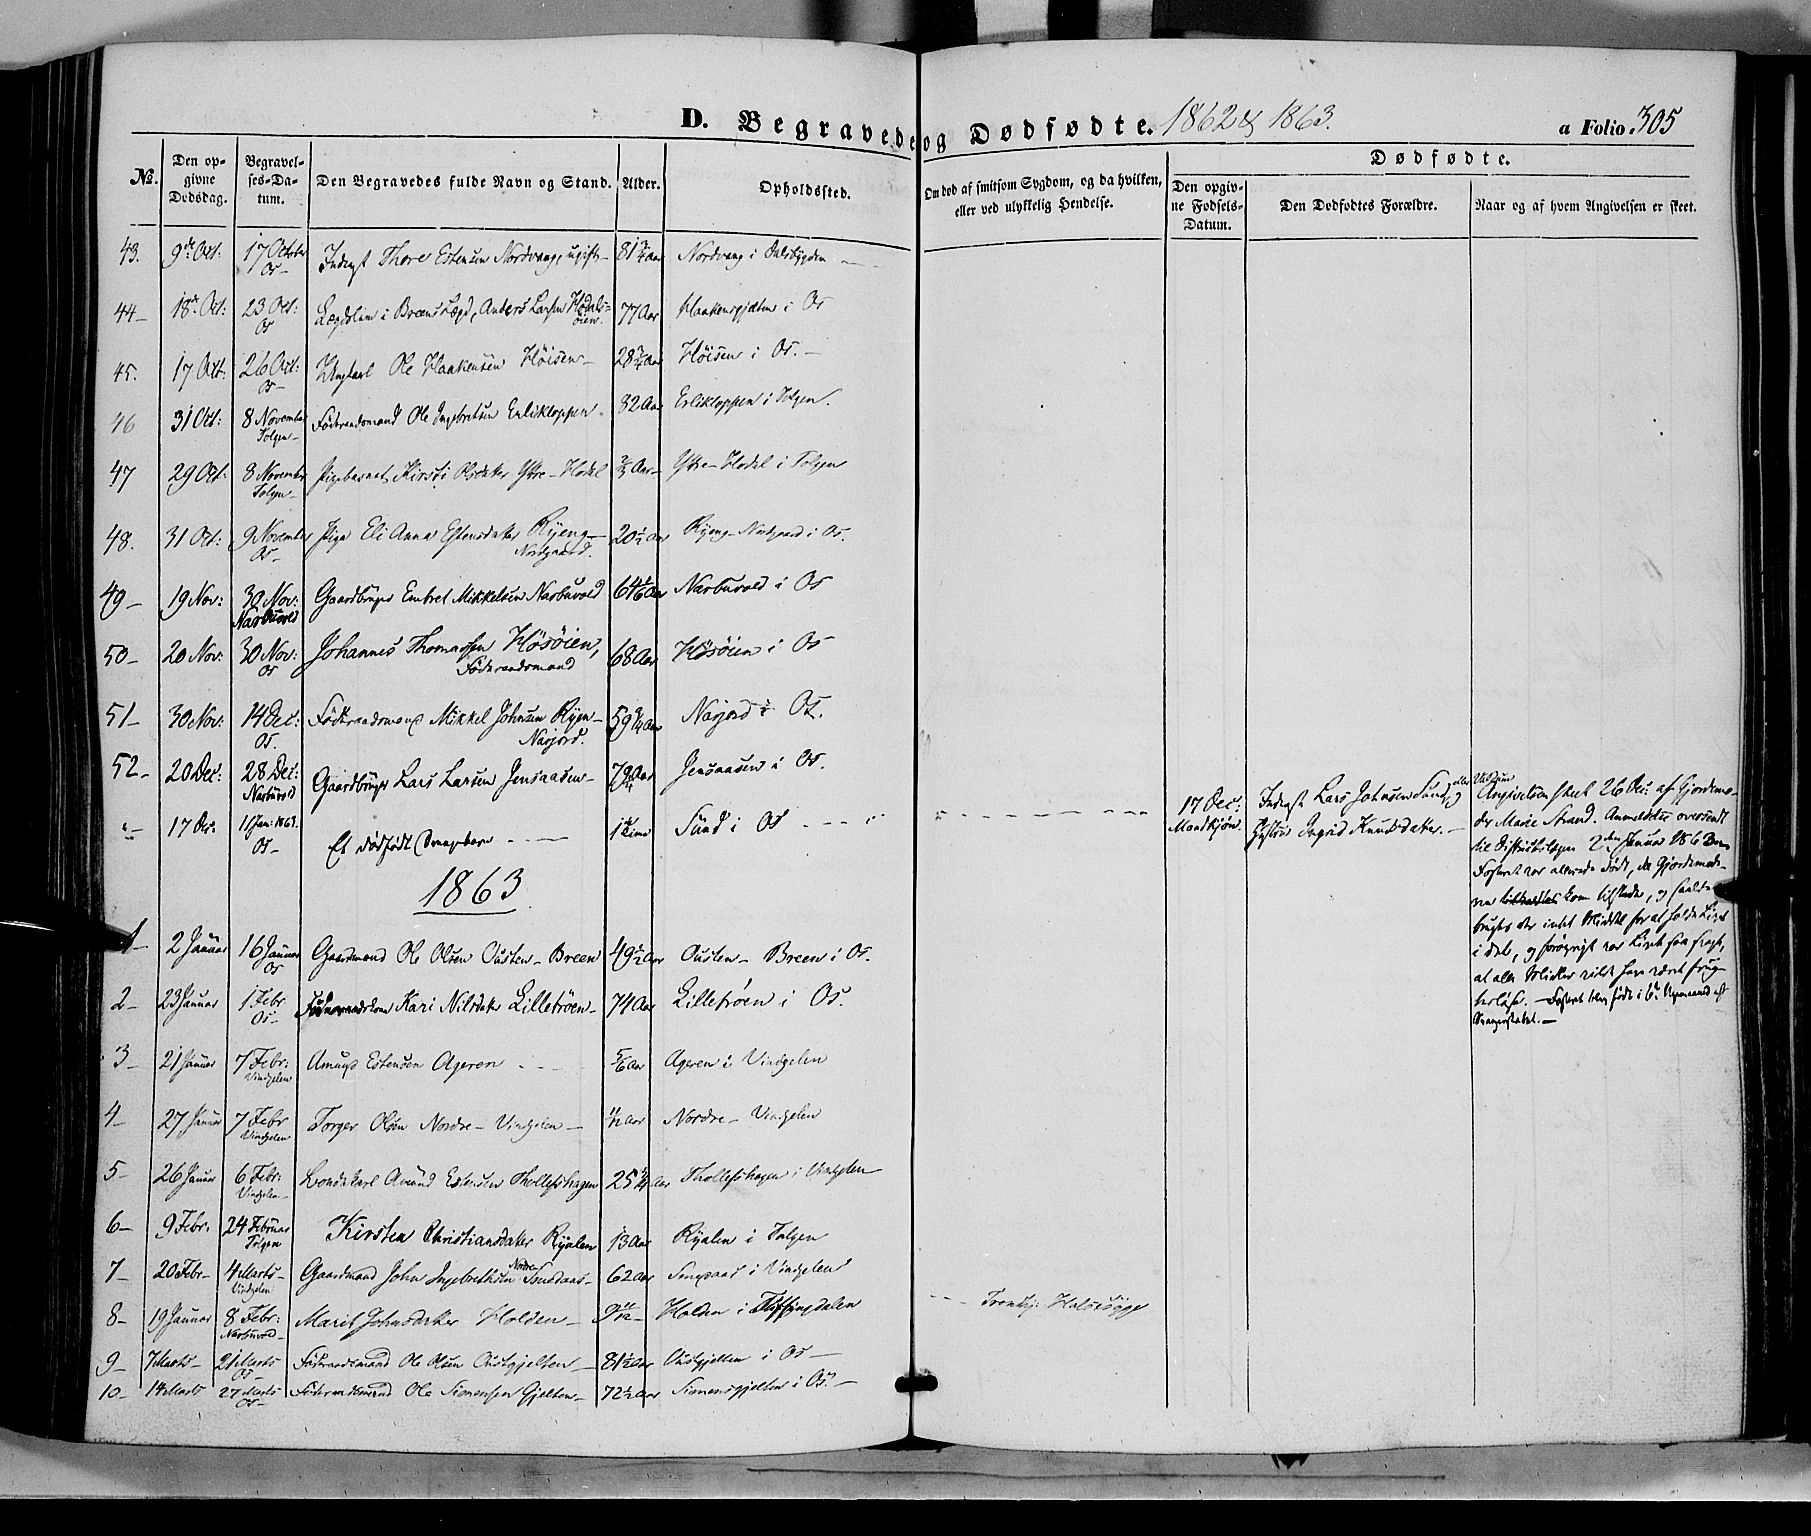 D. Begravede og Dødfødte. 1862 & 1863. a Folio 305
No. Den opgivne Dødsdag. Begravelses-Datum. Den Begravedes fulde Navn og Stand. Alder. Opholdssted. Om død af smitsom Sygdom, og da hvilken, eller ved ulykkelig Hendelse. Dødfødte.
Den opgivne Fødsels-Datum. Den Dødfødtes Forældre. Naar og af hvem Angivelsen er skeet.
43. 9de Oct: 17 October Os- Inderst Thore Estensen Nordvang, ugift- 81 Aar Nordvang i Dalsbygden
44- 18de Oct: 23 Oct: Os Lægdslim i Breens Lægd, Anders Larsen Hodals-øien. 77 Aar Haakensgjelten i Os
45. 17 Oct. 26 Oct: Os- Ungkarl Ole Haakensen Høisen- 28 3/4 Aar Høisen i Os.-
46 31 Oct: 8 November Tolgen- Føderaadsmand Ole Ingebretsen Erlikloppen- 82 Aar Erlikloppen i Tolgen.
47 29 Oct: 8 November Tolgen- Pigebarnet Kirsti Olsdater Ytre-Hodal 2/3 Aar- Ytre-Hodal i Tolgen
48. 31 Oct: 9 November Os- Pige Eli Anna Estensdater Ryeng-Nordgaard. 20 1/2 Aar Ryeng-Nordgaard i Os.
49- 19 Nov: 30 Nov: Narbuvold Gaardbruger Embret Mikkelsen Narbuvold 64 1/6 Aar Narbuvold i Os
50- 20 Nov: 30 Nov: Os Johannes Thomassen Høsøien, Føderaadsmand 68 Aar Høsøien i Os
51- 30 Nov: 14 Dec: Os. Føderaadsmand Mikkel Johnsen Ryen-Narjord. 59 3/4 Aar Narjord i Os.
52- 20 Dec: 28 Dec: Narbuvold Gaardbruger Lars Larsen Jensaasen- Aar Jensaasen i Os.
"- 17 Dec. 11 Jan: 1863. Os- Et dødfødt Drengebarn 1 Time Sund i Os 17 Dec: Mandkjøn. Inderst Lars Johnsen Sund, og Hustru Ingrid Knudsdater.-
Angivelsen skeet 26 Dec: af Gjordemo-
der Marie Strand. Anmeldelse oversendt
til Districtslægen 2den Januar 1863
Fosteret var allerede dødt, da Gjordemode-
ren kom tilstede, og saaledes
brugtes der intet Middel for at holde Livet
i det, og forøvrigt var Livet saa svagt,
at alle Midler vilde have været frug-
tesløse. - Fosteret blev født i 6te Maaned af
Svangerskabet.-
1863
1- 2 Januar 16 Januar Os Gaardmand Ole Olsen Ousten-Breen 49 1/2 Aar Ousten-Breen i Os.
2- 23 Januar 1 Febr Os- Føderaadskone Kari Nilsdater Lillebrøen- 74 Aar Lillebrøen i Os.
3- 21 Januar 7 Febr: Vindgelen Amund Estensen Ageren 5/6 Aar Ageren i Vindgelen
4- 27 Januar 7 Febr Vindgelen Torger Olsen Nordre-Vindgelen- Aar Nordre-Vindgelen
5- 26 Januar 6 Febr: Vindgelen- Bondekarl Amund Estensen Thollefshagen 25 3/4 Aar Thollefshagen i Vindgelen
6- 9 Febr: 24 Februar Tolgen Kirsten Christiansdater Ryalen 13 Aar Ryalen i Tolgen
7- 20 Febr- 4 Marts- Vindgelen Gaardmand John Ingebrethsen Nordre 62 Aar i Vindgelen
8- 19 Januar 8 Febr: Narbuvold- Marit Johnsdater Holden- 9 11/12- Holden i Tuffingdalen Strubesyge
9- 7 Marts- 21 Marts Os- Føderaadsmand Ole Olsen Oustgjelten- 81 1/2 Aar Oustgjelten i Os-
10- 14 Marts 27 Marts Os- Føderaadsmand Ole Simensen Gjelten- 72 1/2 Aar Simensgjelten i Os.-